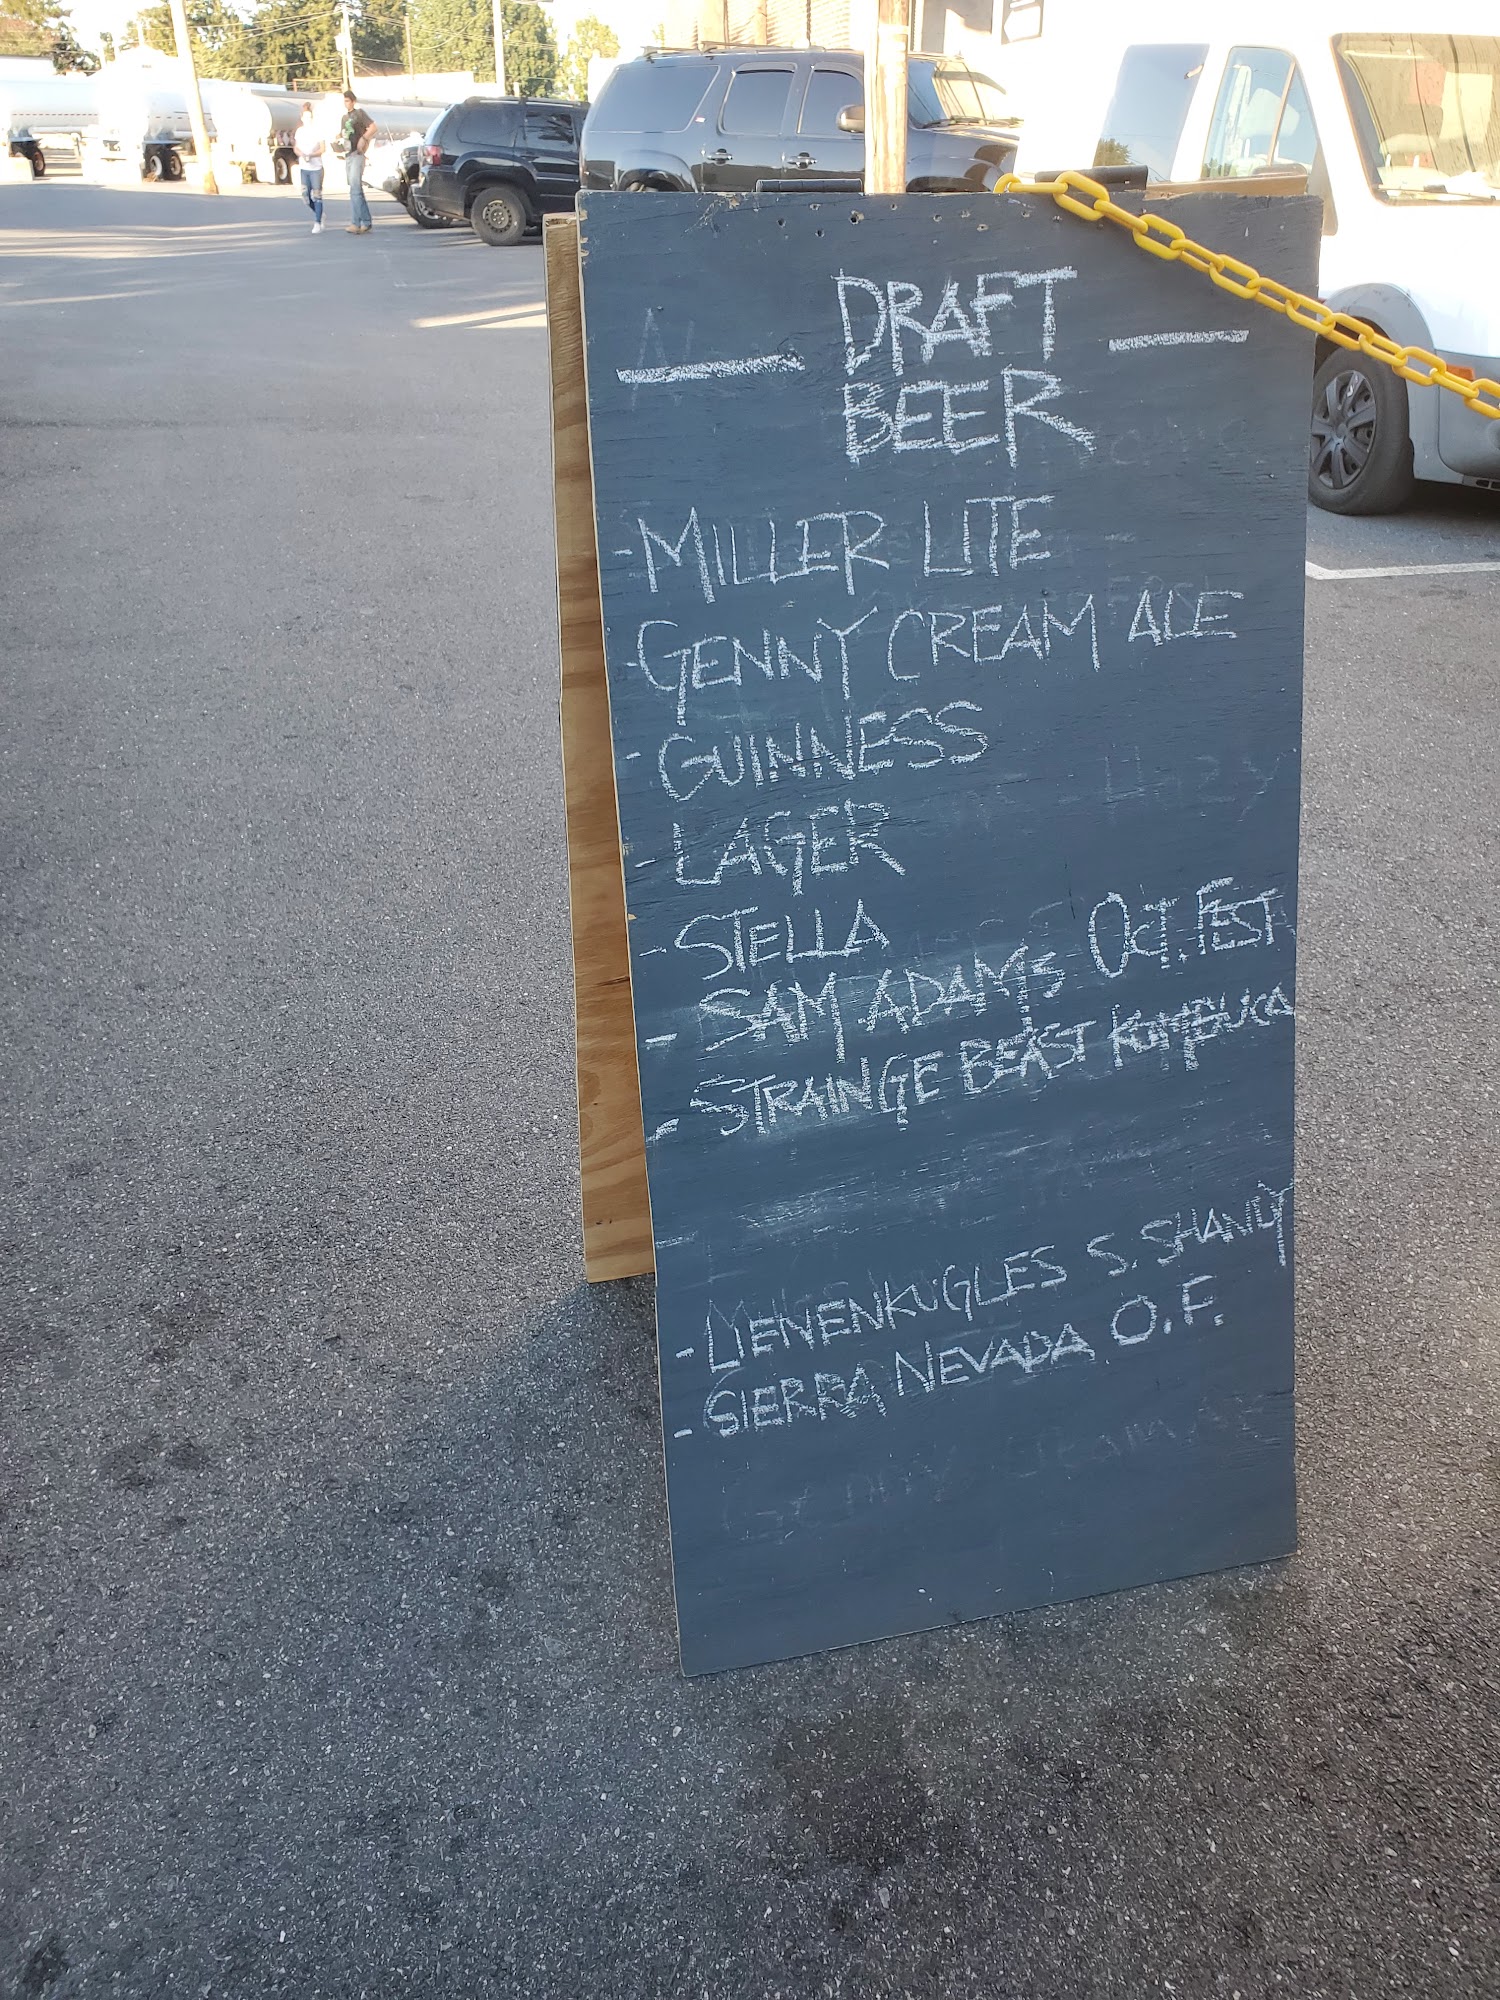 DRAFT
BEER
- MILLER LITE
- GENNY CREAM ALE
- GUINNESS
- LAGER
- STELLA
- SAM ADAMS OCT. FEST
- STRAINGE BEAST KOMBUCA
- LIENENKUGLES S. SHANDY
- SIERRA NEVADA O.F.